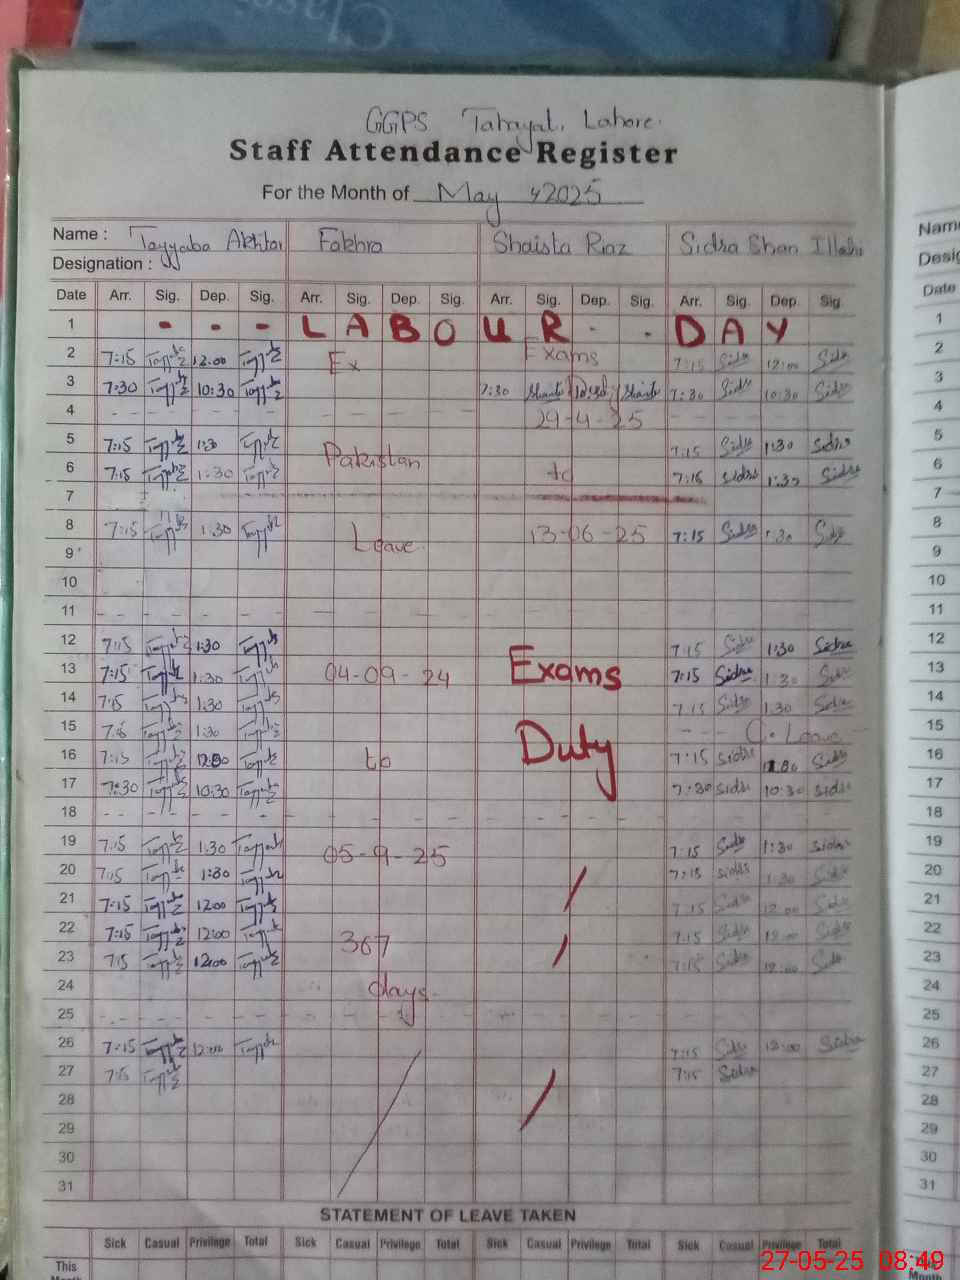 Classi
GGPS Lahore.
Staff Attendance Register
For the Month of May 2025
Name : Tayyaba Akhtar Fakhra Shaista Riaz Sidra Shan Illahi
Designation :
Date Arr. Sig. Dep. Sig. Arr. Sig. Dep. Sig. Arr. Sig. Dep. Sig. Arr. Sig. Dep. Sig
1 - - - L A B O U R - - D A Y
2 7:15 12:00 Ex Exams 7:15 Sidra 12:00 Sidra
3 7:30 10:30 7:30 Shaista 10:30 Shaista 7:30 Sidra 10:30 Sidra
4 29-4-25
5 7:15 1:30 7:15 Sidra 1:30 Sidra
6 7:15 1:30 Pakistan to 7:15 Sidra 1:30 Sidra
7
8 7:15 1:30 Leave. 13-06-25 7:15 Sidra 1:30 Sidra
9
10
11
12 7:15 1:30 7:15 Sidra 1:30 Sidra
13 7:15 1:30 04-09-24 Exams 7:15 Sidra 1:30 Sidra
14 7:15 1:30 7:15 Sidra 1:30 Sidra
15 7:15 1:30 Duty C. Leave
16 7:15 12:00 to 7:15 Sidra 12:00 Sidra
17 7:30 10:30 7:30 Sidra 10:30 Sidra
18
19 7:15 1:30 05-9-25 7:15 Sidra 1:30 Sidra
20 7:15 1:30 7:15 Sidra 1:30 Sidra
21 7:15 12:00 7:15 Sidra 12:00 Sidra
22 7:15 12:00 367 7:15 Sidra 12:00 Sidra
23 7:15 12:00 7:15 Sidra 12:00 Sidra
24 days.
25
26 7:15 12:00 7:15 Sidra 12:00 Sidra
27 7:15 7:15 Sidra
28
29
30
31
STATEMENT OF LEAVE TAKEN
Sick Casual Privilege Total Sick Casual Privilege Total Sick Casual Privilege Total Sick Casual Privilege Total
This
Month
27-05-25 08:49
Name
Desig
Date
1
2
3
4
5
6
7
8
9
10
11
12
13
14
15
16
17
18
19
20
21
22
23
24
25
26
27
28
29
30
31
This
Month